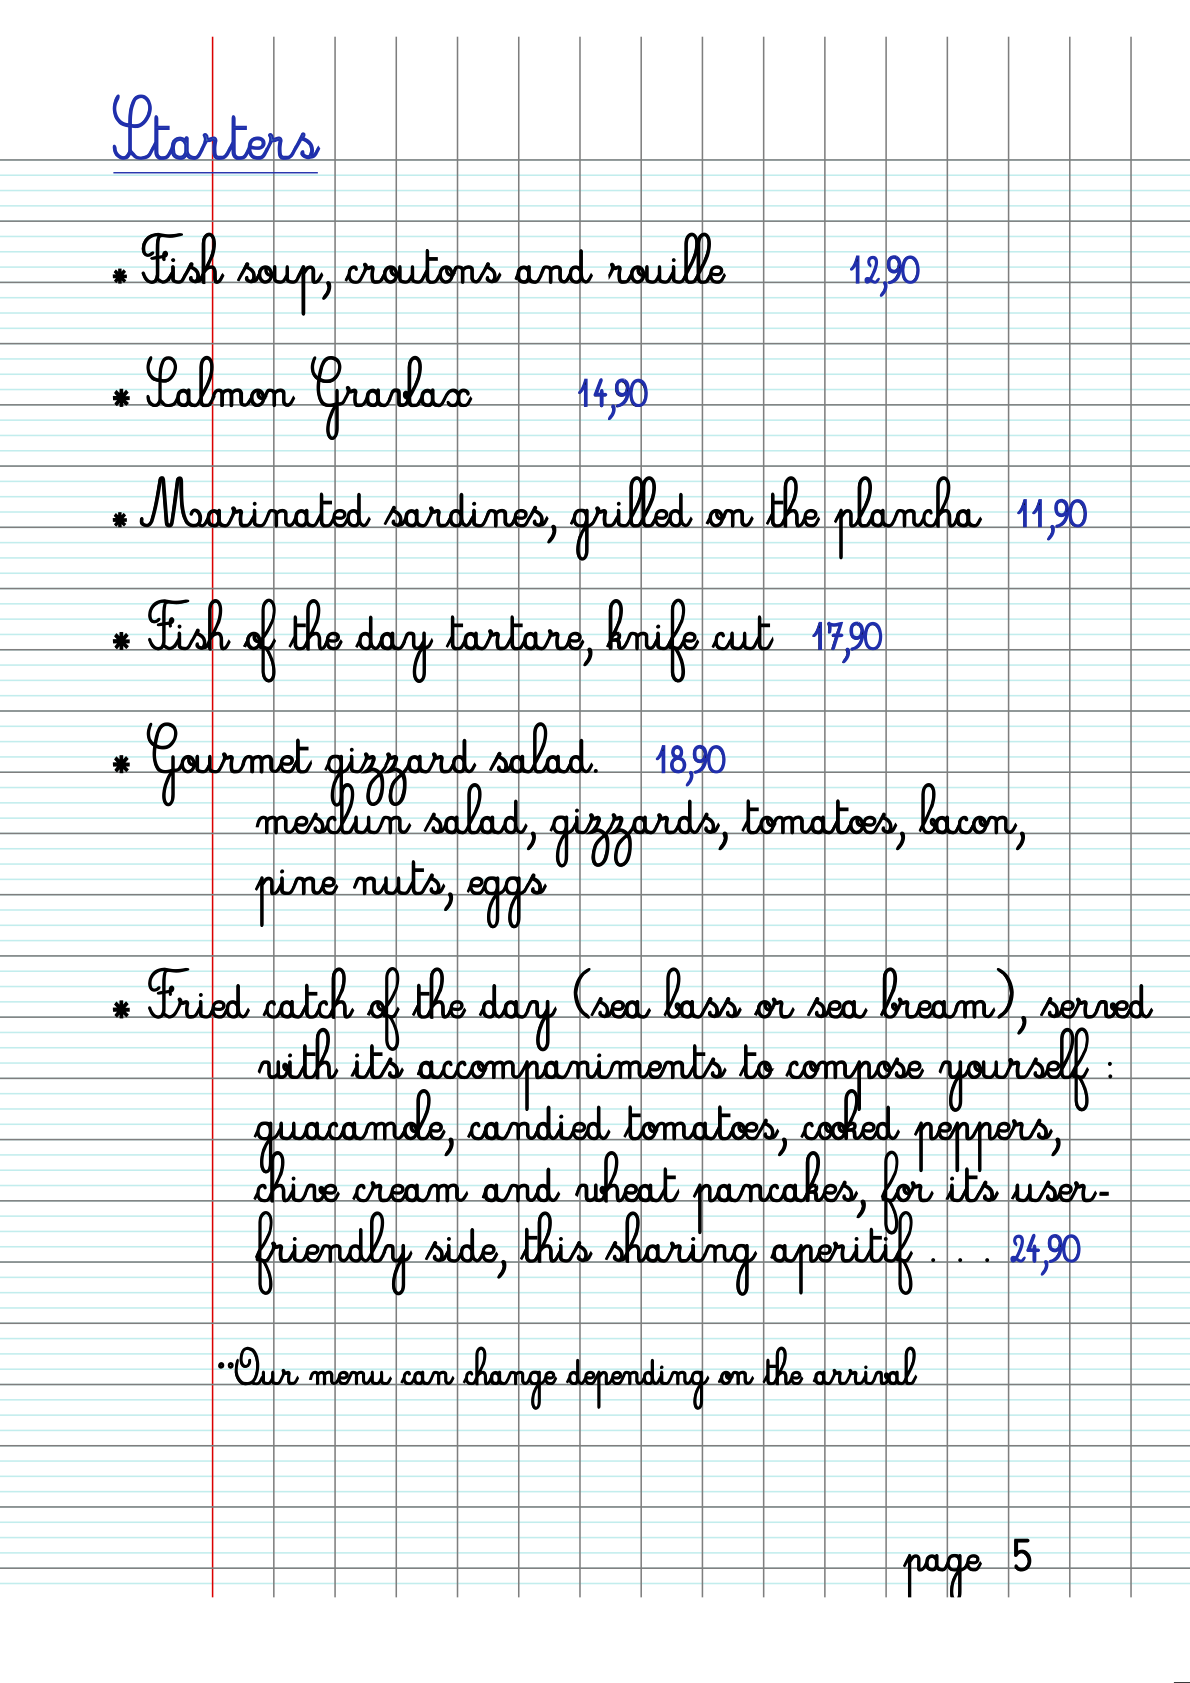 Starters
* Fish soup, croutons and rouille 12,90
* Salmon Gravlax 14,90
* Marinated sardines, grilled on the plancha 11,90
* Fish of the day tartare, knife cut 17,90
* Gourmet gizzard salad. 18,90
mesclun salad, gizzards, tomatoes, bacon,
pine nuts, eggs
* Fried catch of the day (sea bass or sea bream), served
with its accompaniments to compose yourself :
guacamole, candied tomatoes, cooked peppers,
chive cream and wheat pancakes, for its user-
friendly side, this sharing aperitif . . . 24,90
¨Our menu can change depending on the arrival
page 5